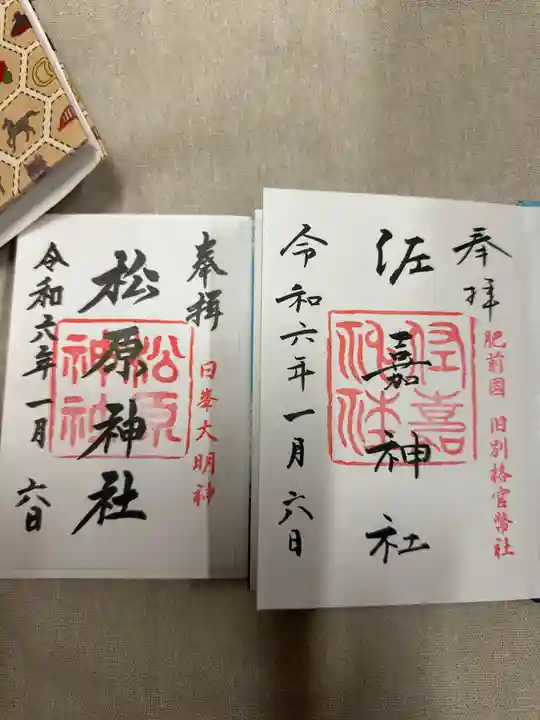 奉拝
日峯大明神
松原神社
松原神社
令和六年一月六日
奉拝
肥前國 旧別格官幣社
佐嘉神社
佐嘉神社
令和六年一月六日